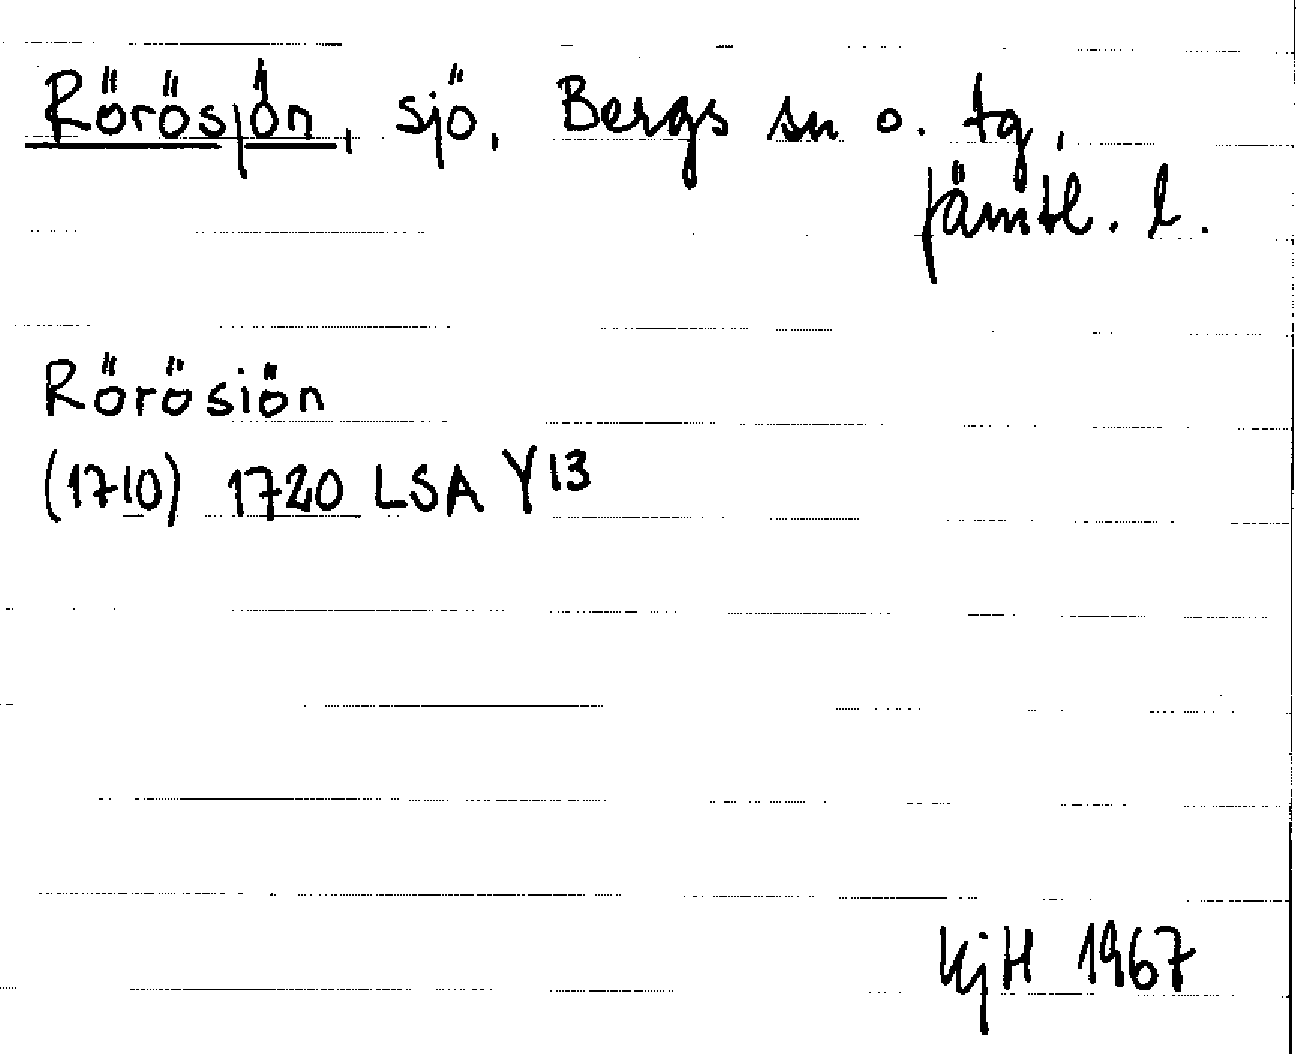 Rörösjön, sjö, Bergs sn o. tg,
Jämtl. l.
Rörösiön
(1710) 1720 LSA Y13
KjH 1967